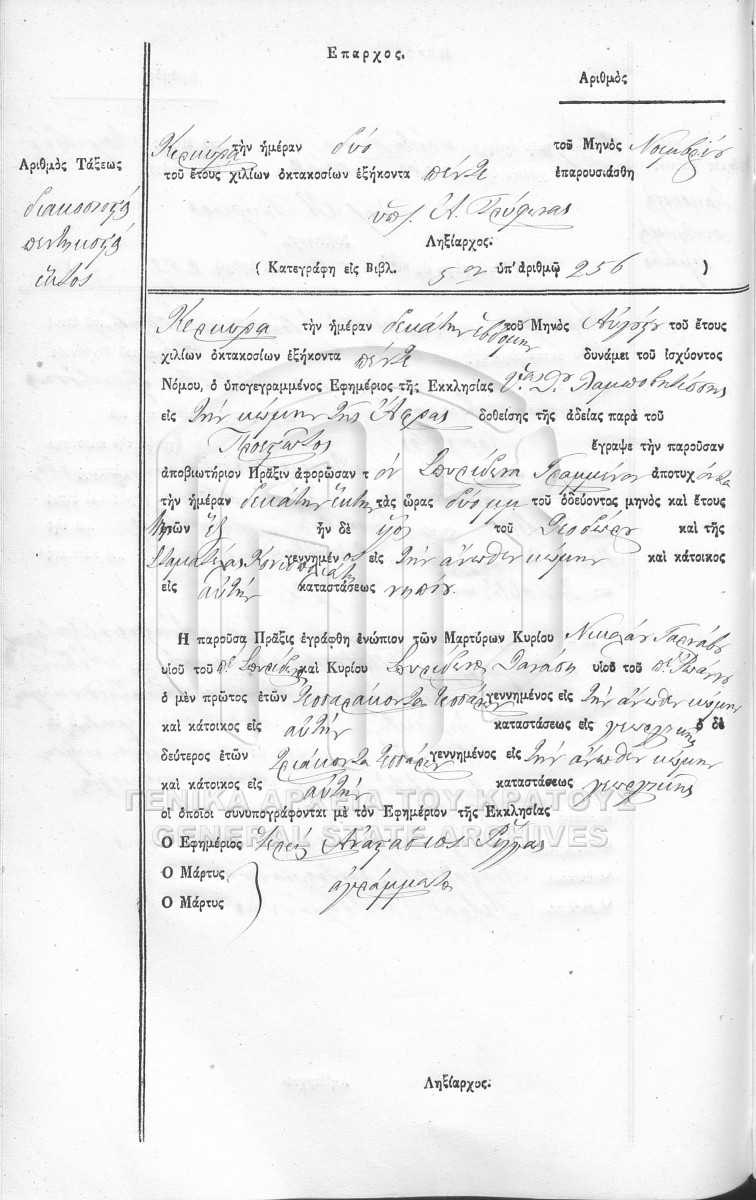 Επαρχος.
Αριθμὸς
Κερκύρα τὴν ἡμέραν δύο τοῦ Μηνὸς Νοεμβρίου
τοῦ ἔτους χιλίων ὀκτακοσίων ἑξήκοντα πέντε ἐπαρουσιάσθη
Αριθμὸς Τάξεως
διακοσιοστὸς
πεντηκοστὸς
ἕκτος
Ληξίαρχος.
( Κατεγράφη εἰς Βιβλ. 5ον ὑπ' ἀριθμῷ 256 )
Κερκύρα τὴν ἡμέραν δεκάτην ἑβδόμην τοῦ Μηνὸς τοῦ ἔτους
χιλίων ὀκτακοσίων ἑξήκοντα πέντε δυνάμει τοῦ ἰσχύοντος
Νόμου, ὁ ὑπογεγραμμένος Εφημέριος τῆς Εκκλησίας
εἰς τὴν κώμην τῆς Άφρας δοθείσης τῆς ἀδείας παρὰ τοῦ
Προεστῶτος ἔγραψε τὴν παροῦσαν
ἀποβιωτήριον Πρᾶξιν ἀφορῶσαν τ ὸν Σπυρίδωνα Γραμμένον ἀποτυχ όντα
τὴν ἡμέραν δεκάτην ἕκτην τὰς ὥρας δύο μμ τοῦ ὁδεύοντος μηνὸς καὶ ἔτους
ἐτῶν ἓξ ἦν δὲ υἱὸς τοῦ Θεοδώρου καὶ τῆς
Σταματέλας γεννημέν ος εἰς τὴν ἄνωθεν κώμην καὶ κάτοικος
εἰς αὐτὴν καταστάσεως νηπίου.
Η παροῦσα Πρᾶξις ἐγράφθη ἐνώπιον τῶν Μαρτύρων Κυρίου Νικολάου
υἱοῦ τοῦ πὲ Σπυρίδωνος καὶ Κυρίου Σπυρίδωνος Δανάση υἱοῦ τοῦ πὲ Ἰωάννου
ὁ μὲν πρῶτος ἐτῶν τεσσαράκοντα τεσσάρων γεννημένος εἰς τὴν ἄνωθεν κώμην
καὶ κάτοικος εἰς αὐτὴν καταστάσεως εἰς γεωργικῆς ὁ δὲ
δεύτερος ἐτῶν τριάκοντα τεσσάρων γεννημένος εἰς τὴν ἄνωθεν κώμην
καὶ κάτοικος εἰς αὐτὴν καταστάσεως γεωργικῆς
ΓΕΝΙΚΑ ΑΡΧΕΙΑ ΤΟΥ ΚΡΑΤΟΥΣ
οἱ ὁποῖοι συνυπογράφονται μὲ τὸν Εφημέριον τῆς Εκκλησίας
GENERAL STATE ARCHIVES
Ο Εφημέριος Ἱερεὺς Ἀναστάσιος
Ο Μάρτυς
ἀγράμματοι
Ο Μάρτυς
Ληξίαρχος.